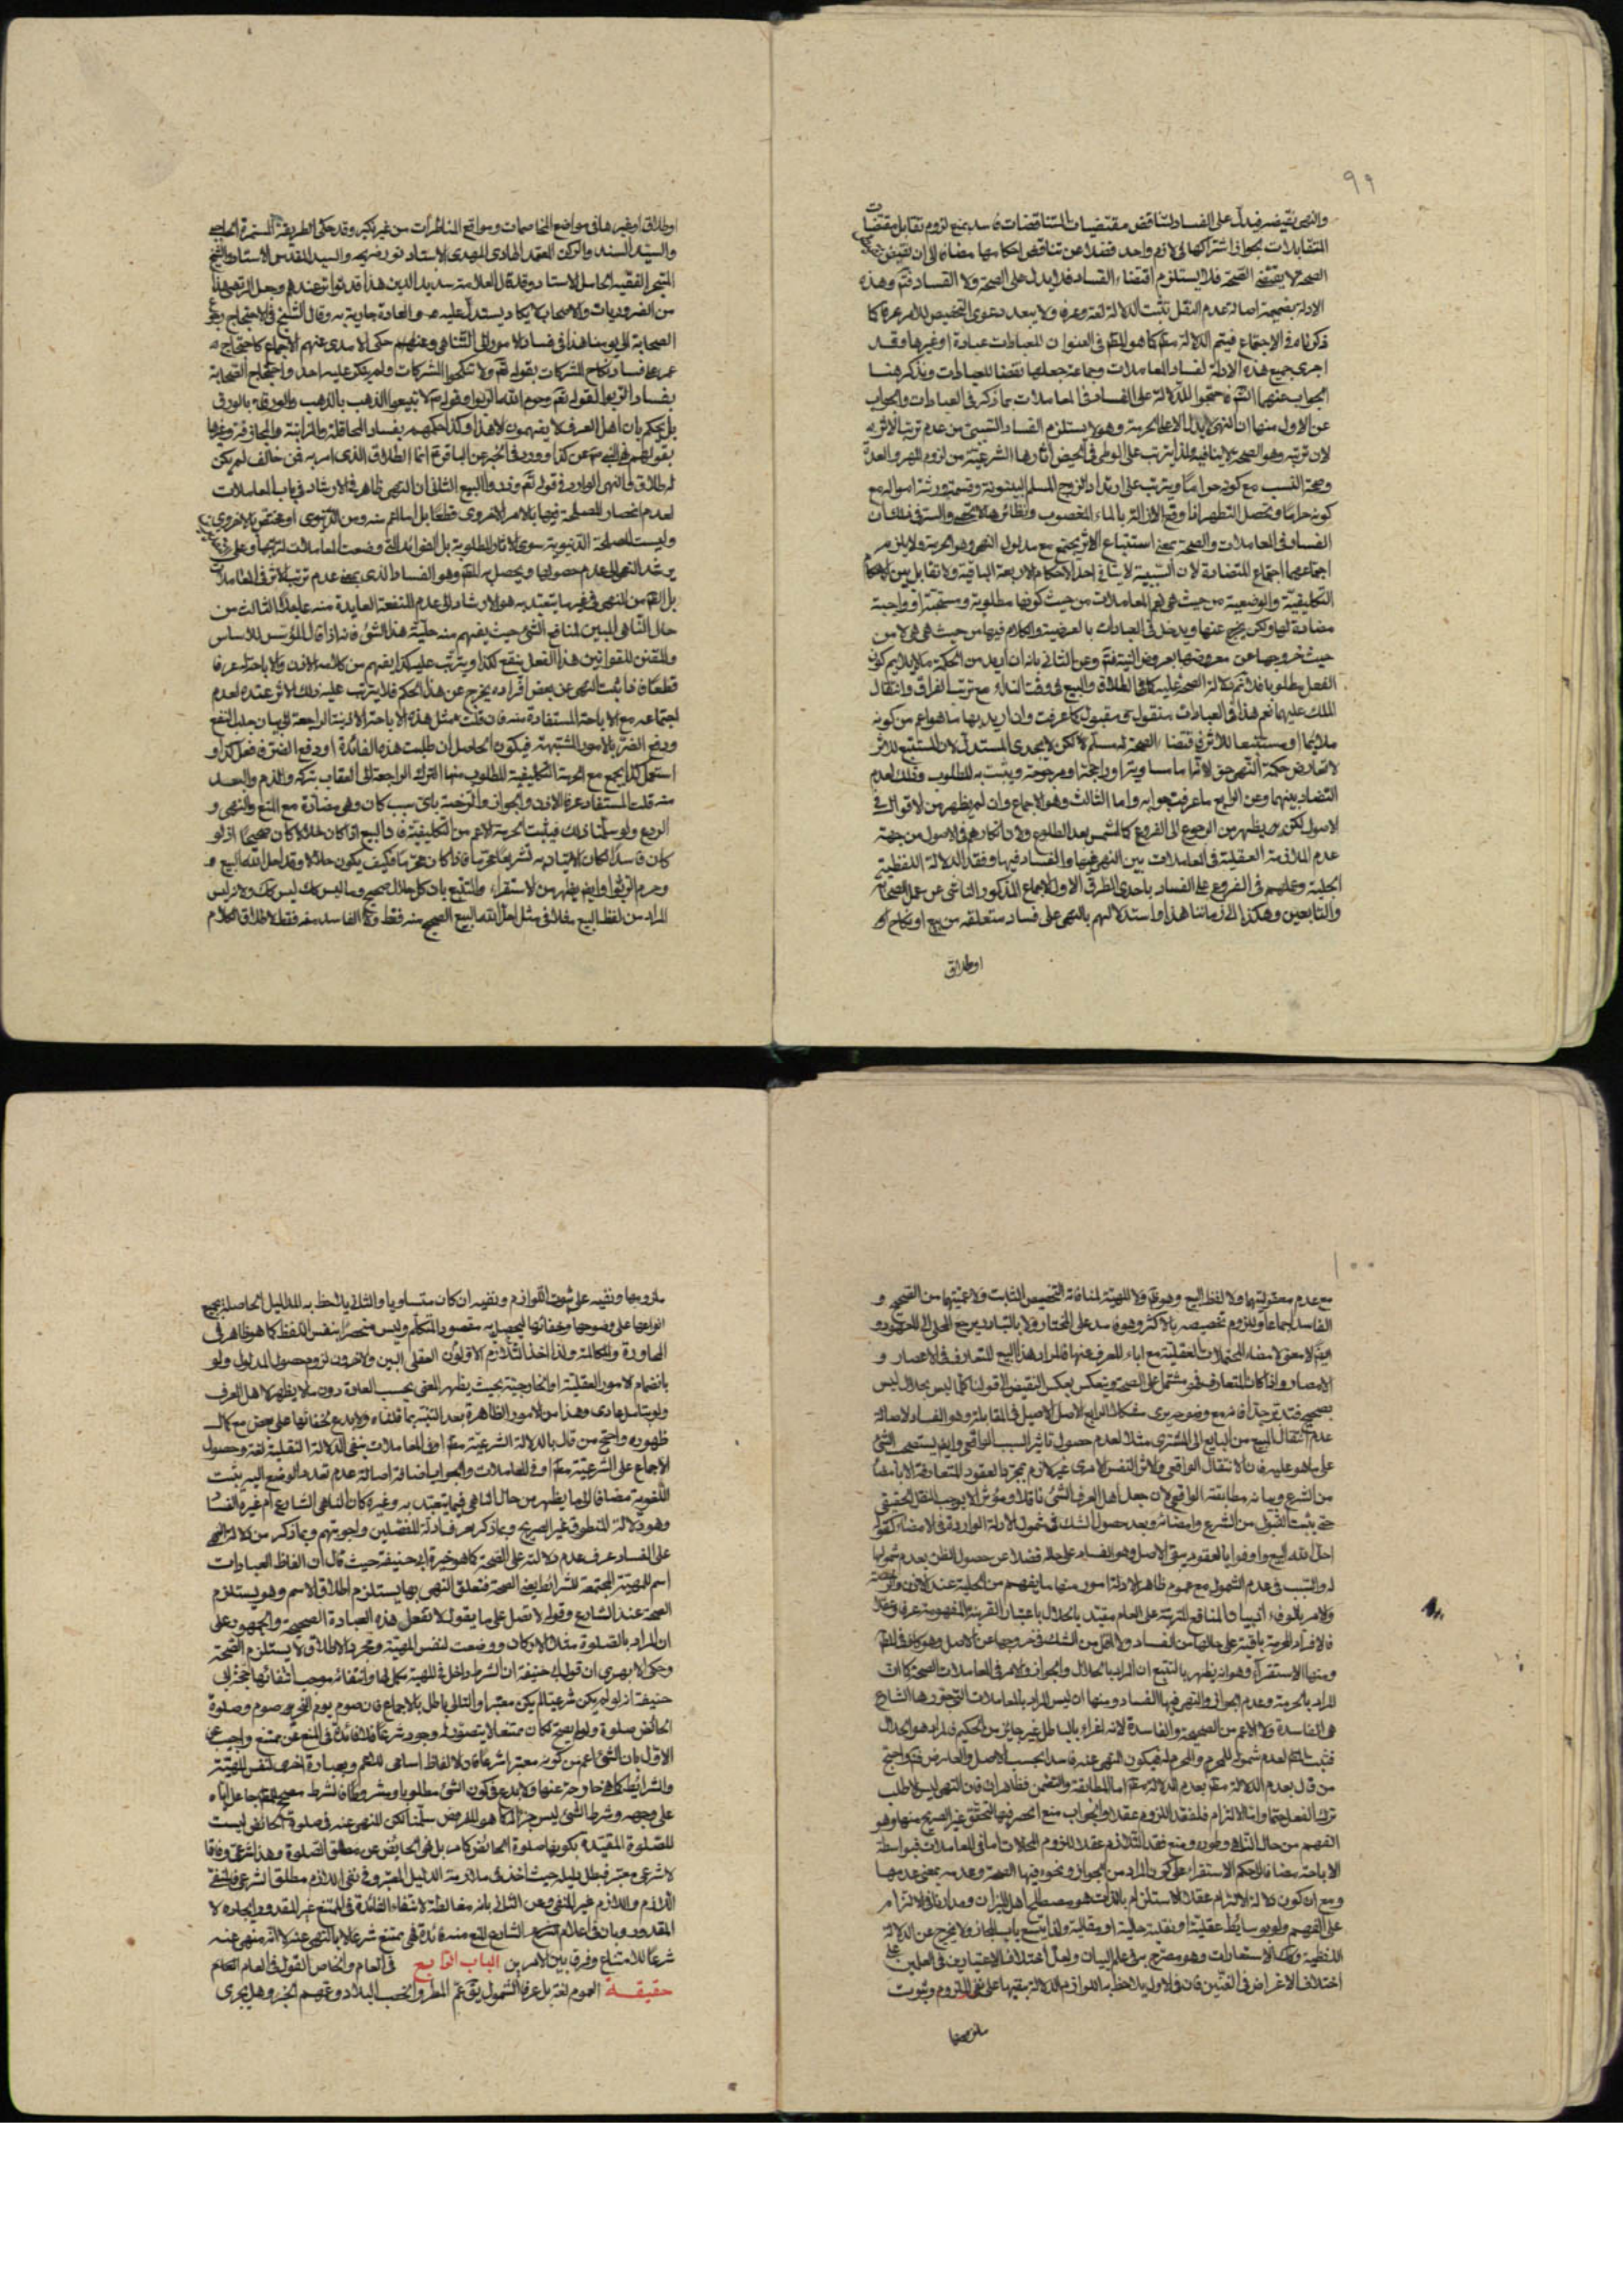 ٩٩
والنهى نقيضه فيدل على الفساد لتناقض مقتضيات المتناقضات فاسد بمنع لزوم تقابل مقتضيات
المتقابلات لجواز اشتراكها فى لازم واحد فضلا عن تناقض احكامها مضافا الى ان نقيض
الصحة لا يقتضى الصحة فلا يستلزم اقتضاء الفساد فلا يدل على الصحة ولا الفساد فتم وهذه
الادلة بضميمة اصالة عدم النقل تثبت الدلالة لغة وعرفا ولا يبعد دعوى التخصيص للامر عرفا كما
ذكرناه فى الاجتماع فيتم الدلالة كما هو فى العنوان للعبادات عبادة او غيرها وقد
اجرى جميع هذه الادلة لفساد المعاملات وجماعة جعلها نقضا للعبادات ونذكر هنا
الجواب عنهما احتجوا للدلالة على الفساد فى المعاملات بما ذكر فى العبادات والجواب
عن الاول منها ان النهى لا يدل الا على الحرمة وهو لا يستلزم الفساد من عدم ترتب الاثر به
لان ترتبه وهو الصحة لا ينافيه ولذا يترتب على الوطى فى الحيض آثارها الشرعية من لزوم المهر والعدة
وصحة النسب مع كونه حراما ويترتب على ارتداد الزوج المسلم البينونة وقسمة ورثته امواله مع
كونه حراما ويحصل التطهر اذا وقع الازالة بالماء المغصوب ونظائر هذا لا تحصى والسر فى ذلك ان
الفساد فى المعاملات والصحة بمعنى استتباع الاثر يجتمع مع مدلول النهى وهو الحرمة ولا يلزم
اجتماعهما اجتماع المتضادة لان السببية لا ينافى احد الاحكام الاربعة الباقية ولا تقابل بين الاحكام
التكليفية والوضعية من حيث هى نعم المعاملات من حيث كونها مطلوبة ومستحبة او واجبة
مضادة لها ولكن يخرج عنها ويدخل فى العبادات بالعرضية والكلام فيها من حيث هى هى لا من
حيث خروجها عن معروضها بعروض النية فتم وعن الثانى بانه ان اريد من الحكمة ما لا يلايم كونه
الفعل مطلوبا فلا تم دلالة الصحة عليه كما فى الطلاق والبيع فى وقت النداء مع ترتب الفراق وانتقال
الملك عليهما نعم هذا فى العبادات منقول ومقبول كما عرفت وان اريد بها ما هو اعم من كونه
ملايما او مستتبعا للاثر فاقتضاء الصحة له مسلم لكن لا يجدى المستدل لان المستتبع للاثر
لا تعارض حكمة النهى حتى لاتما ما مساوية او راجحة او مرجوحة ويثبت به المطلوب وذلك لعدم
التضاد بينهما وعن الرابع ما عرفت جوابه واما الثالث وهو الاجماع وان لم يظهر من الاقوال فى
الاصول لكن يظهر من الرجوع الى الفروع كالشمس بعد الطلوع ولان انكارهم فى الاصول من جهة
عدم الملازمة العقلية فى المعاملات بين النهى فيها والفساد فيها وفقد الدلالة اللفظية
الجلية وعملهم فى الفروع على الفساد باحدى الطرق الاول الاجماع المذكور الناشى عن عمل الصحابة
والتابعين وهكذا الى زماننا هذا واستدلالهم بالنهى على فساد متعلقه من بيع او نكاح او
او طلاق
او طلاق او غيرها فى مواضع المخاصمات ومواقع المناظرات من غير نكير وقد حكى الطريقة المستمرة
والسيد السند والركن العقد الهادى المهدى الاستاد نور ضريحه والسيد المقدس الاستاد والشيخ
المتبحر الفقيه الكامل الاستاد وقد قال العلامة سديد الدين هذا قد تواتر عندهم وجعل المرتضى هذا
من الضروريات والاصحاب لا يكاد يستدل عليه والعادة جارية به وقال الشيخ فى الاحتجاج رجوع
الصحابة الى يومنا هذا فى فساد الامور الى النهى وعنهم حكى الامدى عنهم الاجماع كاحتجاج
عمر على فساد نكاح المشركات بقوله تعم ولا تنكحوا المشركات ولم ينكر عليه احد واحتجاج الصحابة
بفساد الربوا لقوله تعم وحرم الله الربوا وقوله لا تبيعوا الذهب بالذهب والورق بالورق
بل نحكم بان اهل العرف لا يفهمون الا هذا وكذا حكمهم بفساد المحاقلة والمزابنة والمجازفة وغيرها
بقولهم نهى النبى عن كذا وورد فى الخبر عن الباقر انما الطلاق الذى امر به فمن خالف لم يكن
له طلاق الثانى ان النهى ظاهر فى الارشاد فى باب المعاملات
لعدم انحصار المصلحة فيها بالامر الاخروى قطعا بل اما اعم منه ومن الدنيوى او مختص بالاخروى
وليست المصلحة الدنيوية سوى الاثار المطلوبة بل الفوائد التى وضعت المعاملات لترتبها
يرشد النهى الى عدم حصولها ويحصل به وهو الفساد الذى بمعنى عدم ترتب الاثر فى المعاملات
بل من النهى فى غير ما يتعبد به هو الارشاد الى عدم المنفعة العايدة منه على هذا الثالث من
حال الناهى المبين لمنافع الشىء حيث يفهم منه حلية هذا الشىء فانه اذا قال المؤسس للاساس
والمقنن للقوانين هذا الفعل ينفع لكذا ويترتب عليه كذا يفهم من كلامه الاذن والاباحة عرفا
قطعا فاذا ثبت النهى عن بعض افراده يخرج عن هذا الحكم فلا يترتب عليه ذلك الاثر عنده لعدم
اجتماعه مع الاباحة المستفادة منه فان قلت مثل هذه الاباحة الاذنية الراجعة الى بيان جلب النفع
ودفع الضرر بالامور المشتبهة فيكون الحاصل ان طلبت هذه الفائدة او دفع الضرر فافعل كذا او
استعمل كذا يجمع مع الحرمة التكليفية المطلوب منها الترك الراجعة الى العقاب بتركه والذم والبعد
منه قلت المستفاد عرفا الاذن والجواز والرخصة باى سبب كان وهى مضادة مع المنع والنهى و
الردع ولو سلمنا ذلك فيثبت الحرمة الاعم من التكليفية فاذا البيع اذا كان حلالا كان صحيحا اذ لو
كان فاسدا لكان الاتيان به تشريعا محرما فاذا كان محرما فكيف يكون حلالا وقد احل الله البيع و
وحرم الربوا وايضا يظهر من الاستقراء والتتبع بان كل حلال صحيح وما ليس كك ليس كك ولانه ليس
المراد من لفظ البيع مثلا فى مثل احل الله البيع الصحيح منه فقط ولا الفاسد منه فقط لاطلاق الكلام
١٠٠
مع عدم معقوليتها ولا لفظ البيع وهو ولا للمهية لمنافاته التخصيص الثابت ولا عينتها من الصحيح و
الفاسد اجماعا وللزوم تخصيصه بالاكثر وهو فاسد على المختار ولا بالتبادر يرجع المحلى الى المعهود و
ايضا لا معنى لامضاء المحتملات العقلية مع اباء العرف عنها فالمراد هذا البيع المتعارف فى الاعصار و
الامصار واذا كان المتعارف فهو مشتمل على الصحة وينعكس بعكس النقيض الى قولنا كلما ليس بحلال ليس
بصحيح فتدبر جدا فانه مع وضوحه يرى مشكلا الرابع الاصل الاصيل فى المقابلة وهو الفساد لاصالة
عدم انتقال المبيع من البايع الى المشترى مثلا لعدم حصول تاثير السبب الواقعى وايضا يستصحب الشىء
على ما هو عليه فان الانتقال الواقعى والاثر النفس الامرى غير لازم بمجرد العقود المتعارفة الا بامضاء
من الشرع وبيانه مطابقته الواقع لان جعل اهل العرف الشىء ناقلا ومؤثرا لا يوجب النقل الحقيقى
حتى يثبت القبول من الشرع وامضائه وبعد حصول الشك فى شمول الادلة الواردة فى الامضاء كقوله
احل الله البيع واوفوا بالعقود يبقى الاصل وهو الفساد على حاله فضلا عن حصول الظن بعدم شمولها
له والسبب فى عدم الشمول مع عموم ظاهر الادلة امور منها ما يفهم من الحلية عند الاذن والرخصة
والامر بالوفاء لبيان المنافع المترتبة على العام مقيد بالحلال باعتبار القرينة المفهومة عرفا وعقلا
فالافراد المحرمة باقية على حالها من الفساد ولا اقل من الشك فى خروجها عن الاصل وهو كاف فى
ومنها الاستقراء وهو انه يظهر بالتتبع ان المراد بالحلال والجواز والامر فى المعاملات الصحة كما ان
المراد بالحرمة وعدم الجواز والنهى فيها الفساد ومنها ان ليس المراد بالمعاملات التى جوزها الشارع
هى الفاسدة ولا الاعم من الصحيحة والفاسدة لانه اغراء بالباطل غير جايز من الحكيم فالمراد هو الحلال
فثبت لعدم شموله للمحرم والمحرم له فيكون النهى عنه فاسدا بحسب الاصل والعارض فتم واحتج
من قال بعدم الدلالة مطلقا بعدم الدلالة مطلقا اما المطابقة والتضمن فظاهران فان النهى ليس الا طلب
ترك الفعل حتما واما الالتزام فلفقد اللزوم عقلا والجواب منع انحصر فيها لتحقق غير الصريح منها وهو
الفهم من حال الناهى وطوره ومنع فقد التلازم عقلا للزوم المحالات اما فى المعاملات فبواسطة
الاباحة مضافا الى حكم الاستقراء على كون المراد من الجواز ونحوه فيها الصحة وعدمه بمعنى عدمها
ومع ان كون دلالة الالتزام عقلا الاستلزام بالذات هو مصطلح اهل الميزان ومدارنا فى الالتزام
على الفهم ولو بوسايط عقلية او نقلية حالية او مقالية ولذا يتسع باب المجاز ولا يخرج عن الدلالة
اللفظية وكذا الاستعارات وهو مصرح به فى علم البيان ولعل اختلاف الاعتبارين فى العلمين على
اختلاف الاغراض فى الفنين فان فى الاول يلاحظ به اللوازم الدلالة بنفيها على نفى الملزوم وثبوت
ملزومها
ملزومها ونفيه على ثبوت اللوازم ونفيه ان كان متساويا والثانى يلاحظ به الدلايل الحاصلة بجميع
انواعها على وضوحها وخفائها ليحصل به مقصود المتكلم وليس منحصرا بنفس اللفظ كما هو ظاهر فى
المحاورة والمكالمة ولذا اخذ التلازم الاولون العقلى البين والاخرون لزوم حصول المدلول ولو
بانضمام الامور العقلية او الخارجية بحيث يظهر المعنى بحسب العادة دون ما لا يظهر لاهل العرف
ولو بتامل عادى وهذا من الامور الظاهرة بعد التنبه بما قلناه ولا بدع لخفائها على بعض مع كمال
ظهوره واحتج من قال بالدلالة الشرعية مطلقا او فى المعاملات بنفى الدلالة النقلية لغة وحصول
الاجماع على الشرعية مطلقا او فى المعاملات والجواب باضافة اصالة عدم تعدد الوضع اليه يثبت
اللغوية مضافا الى ما يظهر من حال الناهى فيما يتعبد به وغيره كان الناهى الشارع ام غيره الفساد
وهو دلالة المنطوق غير الصريح وبما ذكر يعرف ادلة المفصلين واجوبتهم وبما ذكر من دلالة النهى
على الفساد عرف عدم دلالته على الصحة كما هو خيرة ابى حنيفة حيث قال ان الفاظ العبادات
اسم للمهية المجتمعة للشرائط يعنى الصحة فتعلق النهى بها يستلزم اطلاق الاسم وهو يستلزم
الصحة عند الشارع وقوله لا تصل على ما يقول لا تفعل هذه العبادة الصحيحة والجمهور على
ان المراد بالصلوة مثلا الاركان ووضعت لنفس المهية ومجرد الاطلاق لا يستلزم الصحة
وحكى الابهرى ان قول ابى حنيفة ان الشرط داخل فى المهية مكمل لها وانتفائه موجب انتفائها حجة ابى
حنيفة انه لو لم يكن شرعيا لم يكن معتبرا والتالى باطل بالاجماع فان صوم يوم النحر صوم وصلوة
الحائض صلوة ولو لم يصح لكان ممتنعا لا يتصور له وجود شرعا فلا فائدة فى المنع عن ممتنع واجيب عن
الاول بان الشىء اعم من كونه معتبرا شرعا فان الالفاظ اسامى للاعم وبعبارة اخرى لنفس المهية
والشرائط كلها خارجة عنها ولا بدع فى كون الشىء مطلوبا ومشروطا فالشرط مصحح جاعل اياه
على وجهه وشرط الشىء ليس جزءا له كما هو المفروض سلمنا لكن المنهى عنه فى صلوة الحائض ليست
الصلوة المقيدة بكونها صلوة الحائض كما مر بل نهى الحائض عن مطلق الصلوة وهذا شرعى وفاقا
لا شرعى معتبر فبطل دليله حيث اخذ فى ملازمة الدليل المعتبر وفى نفى اللازم مطلق الشرعى فالمنتفى
اللازم واللازم غير المنفى وعن الثانى بانه مغالطة لانتفاء الفائدة فى الممتنع غير المقدور وايجاده لا
المقدور وبان فى اعلام الشارع للمنع منه فائدة فهى ممتنع شرعا لا بالنهى عنه لانه منهى عنه
شرعا للامتناع وفرق بين الامرين الباب الرابع فى العام والخاص القول فى العام
حقيقة العموم لغة بل عرفا الشمول يق عم المطر والخصب البلاد وعمهم الخير وهل يجرى